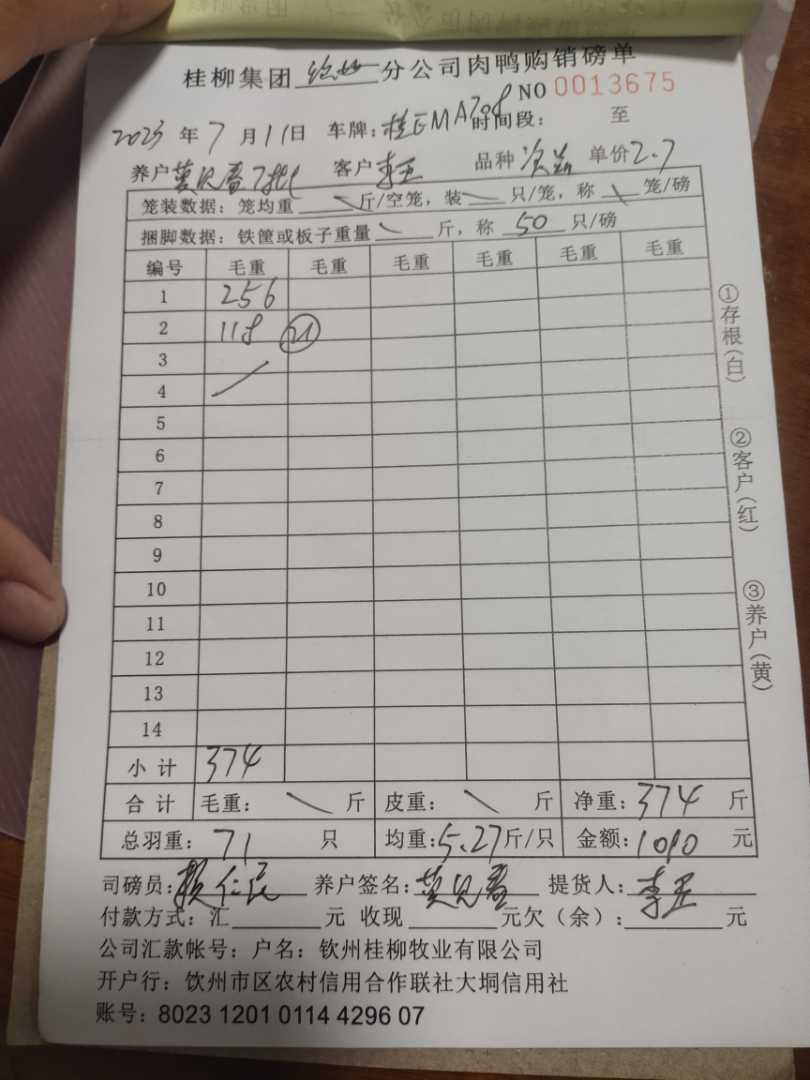 桂柳集团 分公司肉鸭购销磅单
NO 0013675
2023 年 7 月 11 日 车牌：桂EMA708 时间段： 至
养户 莫 客户 李 品种 次 单价 2.7
笼装数据：笼均重 斤/空笼，装 只/笼，称 笼/磅
捆脚数据：铁筐或板子重量 斤，称 50 只/磅
编号 毛重 毛重 毛重 毛重 毛重 毛重
1 256
2 118 21
3
4
5
6
7
8
9
10
11
12
13
14
小 计 374
合 计 毛重： 斤 皮重： 斤 净重：374 斤
总羽重：71 只 均重：5.27 斤/只 金额：1010 元
司磅员：赖仁民 养户签名：莫 提货人：李
付款方式：汇 元 收现 元欠（余）： 元
公司汇款帐号：户名：钦州桂柳牧业有限公司
开户行：饮州市区农村信用合作联社大垌信用社
账号：8023 1201 0114 4296 07
①存根（白）
②客户（红）
③养户（黄）